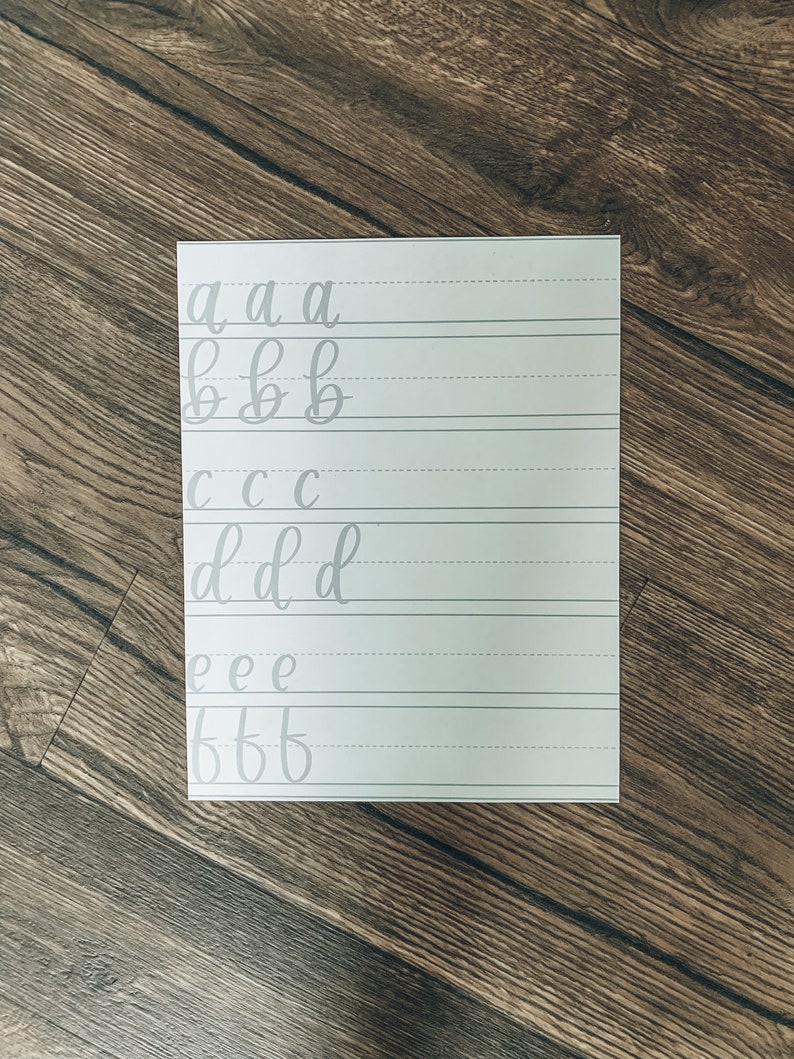 a a a
b b b
c c c
d d d
e e e
f f f